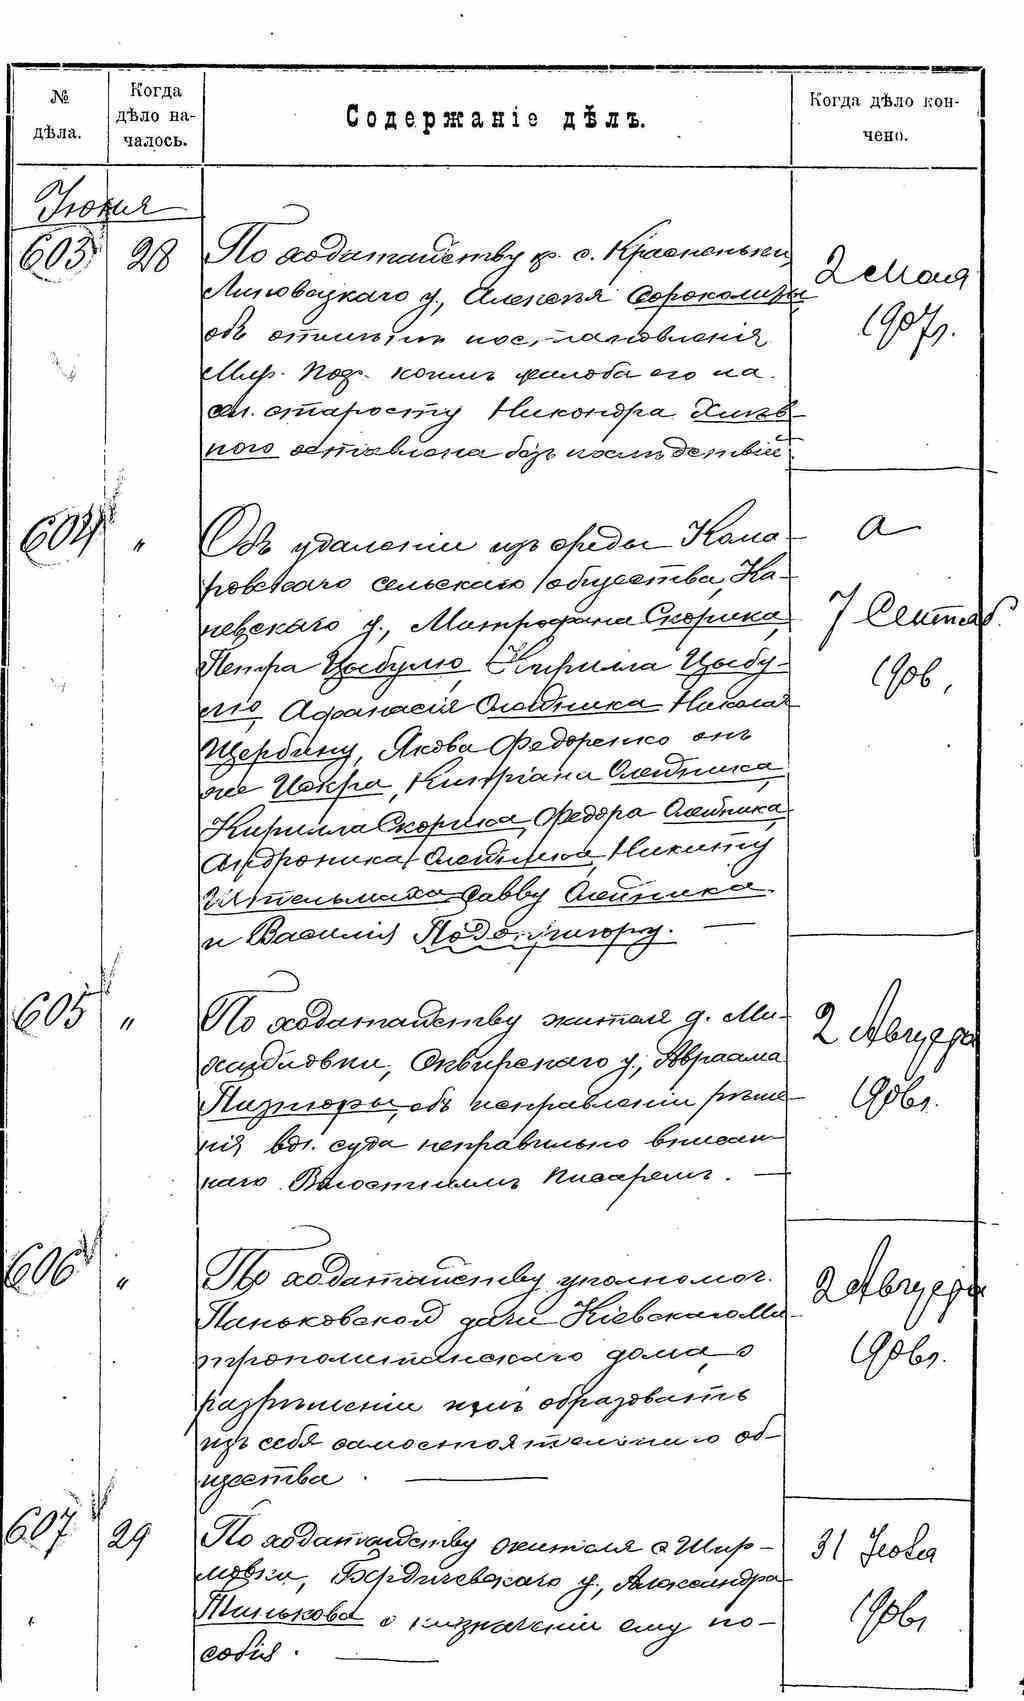 № дѣла.
Когда дѣло началось.
Содержаніе дѣлъ.
Когда дѣло кончено.
Іюня
603 28 По ходатайству кр. с. Красненьки, 2 Мая
Липовецкаго у., Алексѣя Сороколиты 1907г.
объ отмѣнѣ постановленія
Мир. Пос. коимъ жалоба его на
сел. старосту Никондра Хлѣв-
ного оставлена безъ послѣдствій.
604 " Объ удаленіи изъ среды Кома- а
ровскаго сельскаго общества, Ка-
невскаго у., Митрофана Скорика, 7 Сентяб.
Петра Цыбулю, Кирилла Цыбу- 1906,
лю, Афанасія Олейника Николая
Щербину, Якова Федоренко онъ
же Искра, Кипріана Олейника,
Кирилла Скорика, Федора Олейника,
Андроника Олейника, Никиту
Штельмаха, Савву Олейника
и Василія Подопригору.
605 " По ходатайству жителя д. Ми- 2 Августа
хайловки, Сквирскаго у., Авраама
Пизнюры, объ исправленіи рѣше- 1906г.
нія вол. суда неправильно вписан-
наго Волостнымъ писаремъ.
606 " По ходатайству уполномоч. 2 Августа
Паньковской дачи Кіевскаго Ми-
трополитанскаго дома, о 1906г.
разрѣшеніи имъ образовать
изъ себя самостоятельнаго об-
щества.
607 29 По ходатайству жителя с. Шир- 31 Іюля
мовки, Бердичевскаго у., Александра
Тинькова о назначеніи ему по- 1906г
собія.